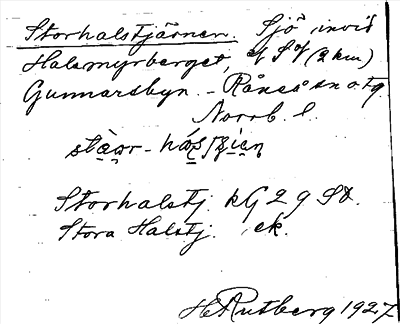 Storhalstjärnen. Sjö invid
Halsmyrberget, (2 km)
Gunnarsbyn. - Råneå sn o tg.
Norrb. l.
Storhalstj. kG 2 g SV.
Stora Halstj. ek.
H Rutberg 1927